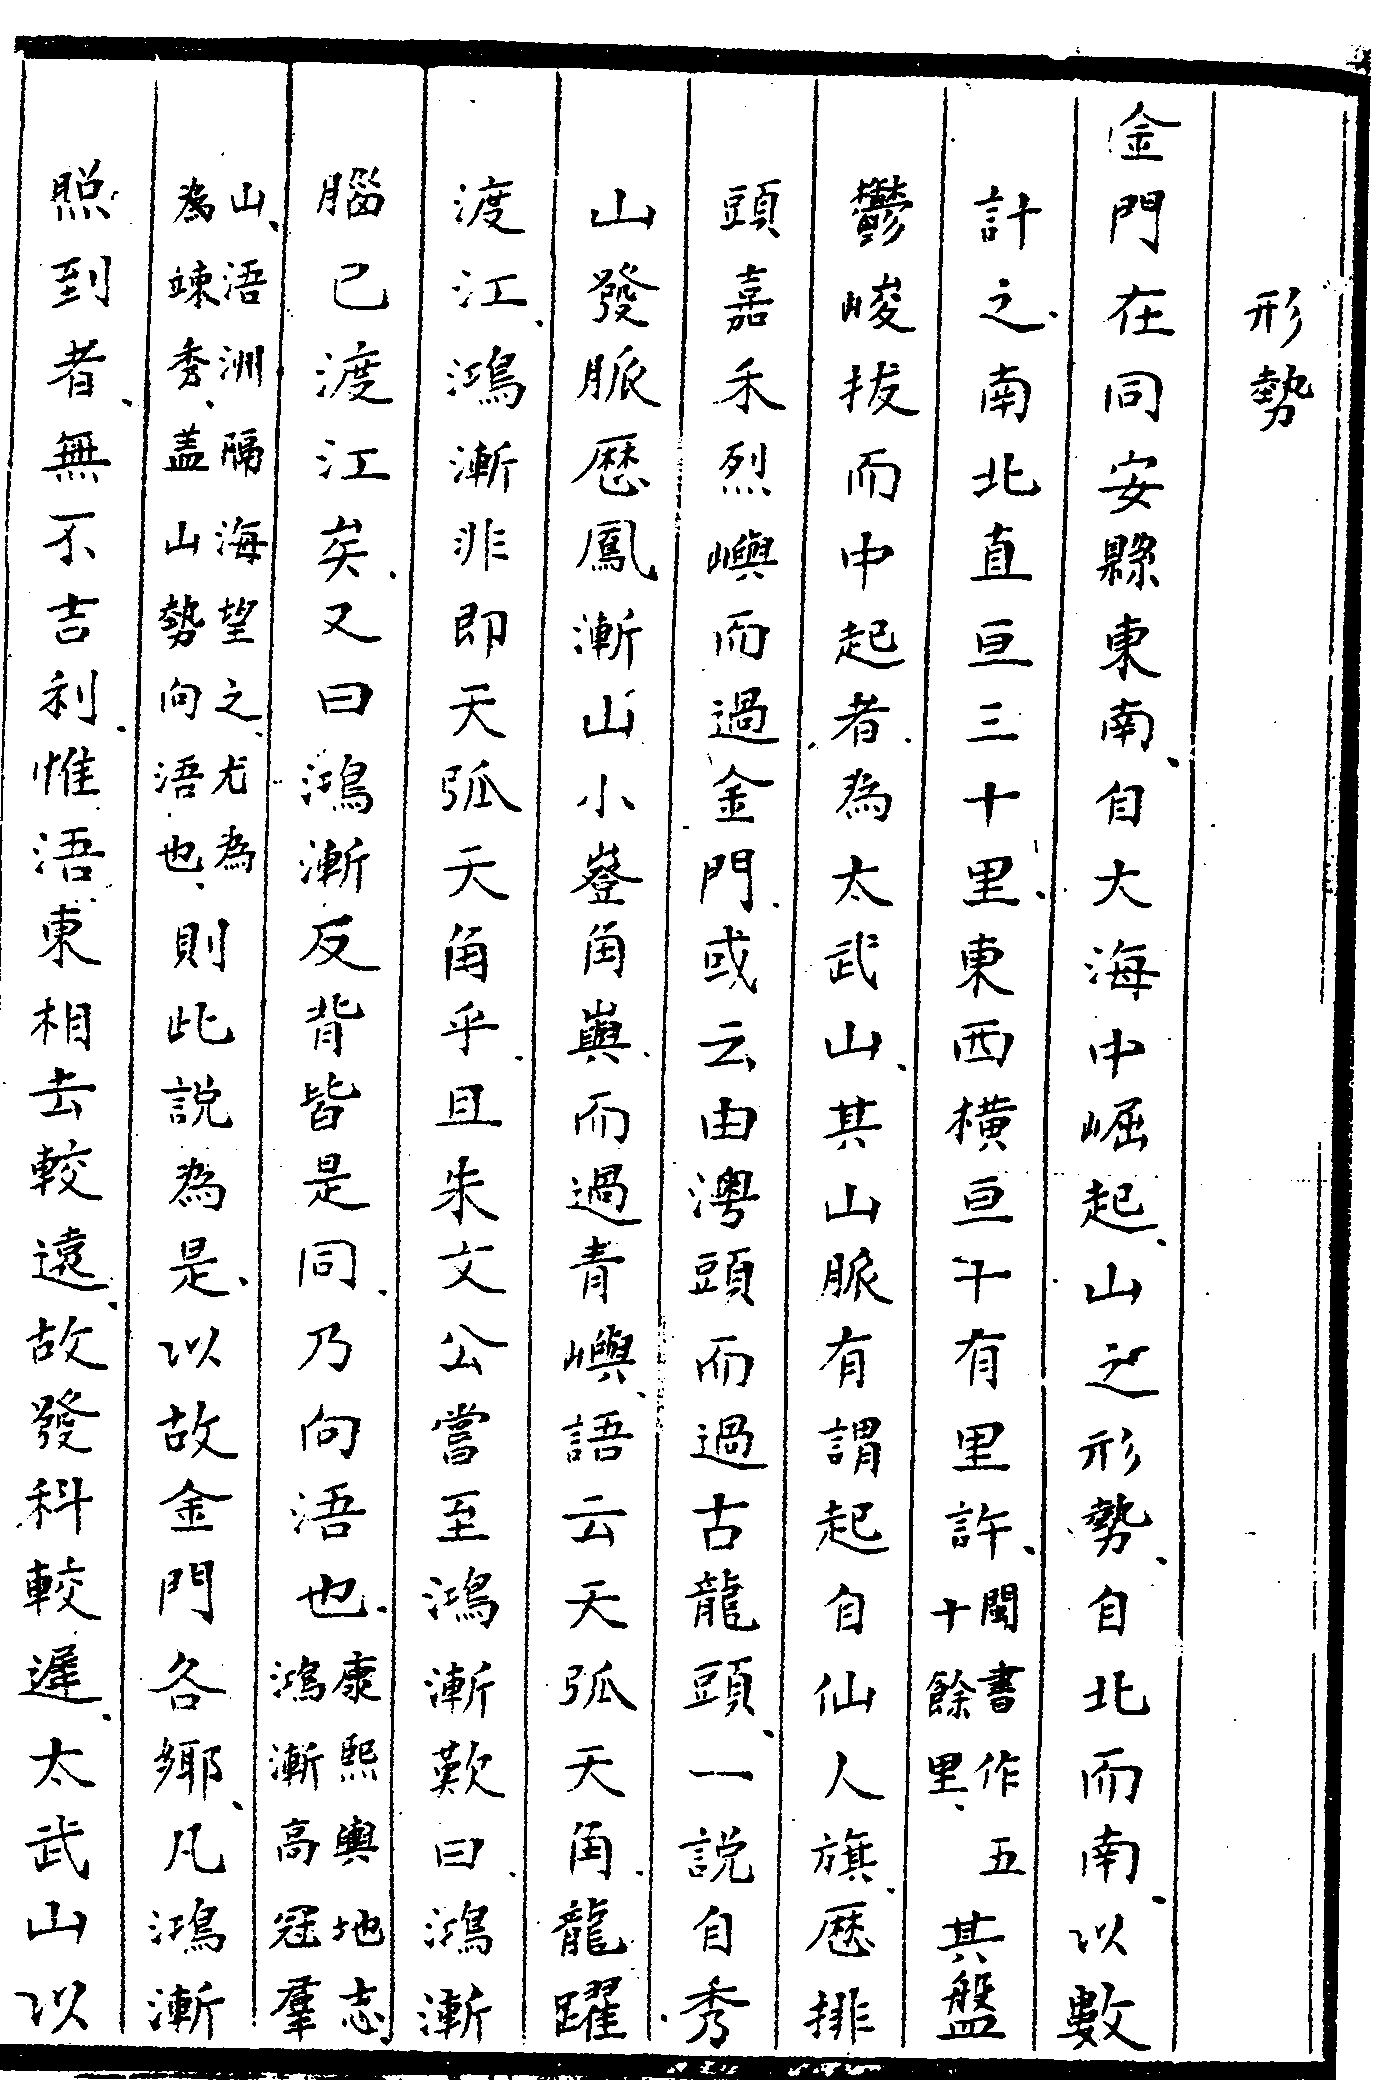 形勢
金門在同安縣東南自大海中崛起山之形勢自北而南以數
計之南北直亘三十里東西橫亘十有里許閩書作五十餘里其盤
鬱峻拔而中起者為太武山其山脈有謂起自仙人旗歷排
頭嘉禾烈嶼而過金門或云由澳頭而過古龍頭一說自秀
山發脈歷鳳漸山小嶝角嶼而過青嶼語云天弧天角龍躍
渡江鴻漸非即天弧天角乎且朱文公嘗至鴻漸歎曰鴻漸
腦已渡江矣又曰鴻漸反背皆是同乃向浯也康熙輿地志鴻漸高冠羣
山浯洲隔海望之尤為為竦秀蓋山勢向浯也則此說為是以故金門各鄉凡鴻漸
照到者無不吉利惟浯東相去較遠故發科較遲太武山以